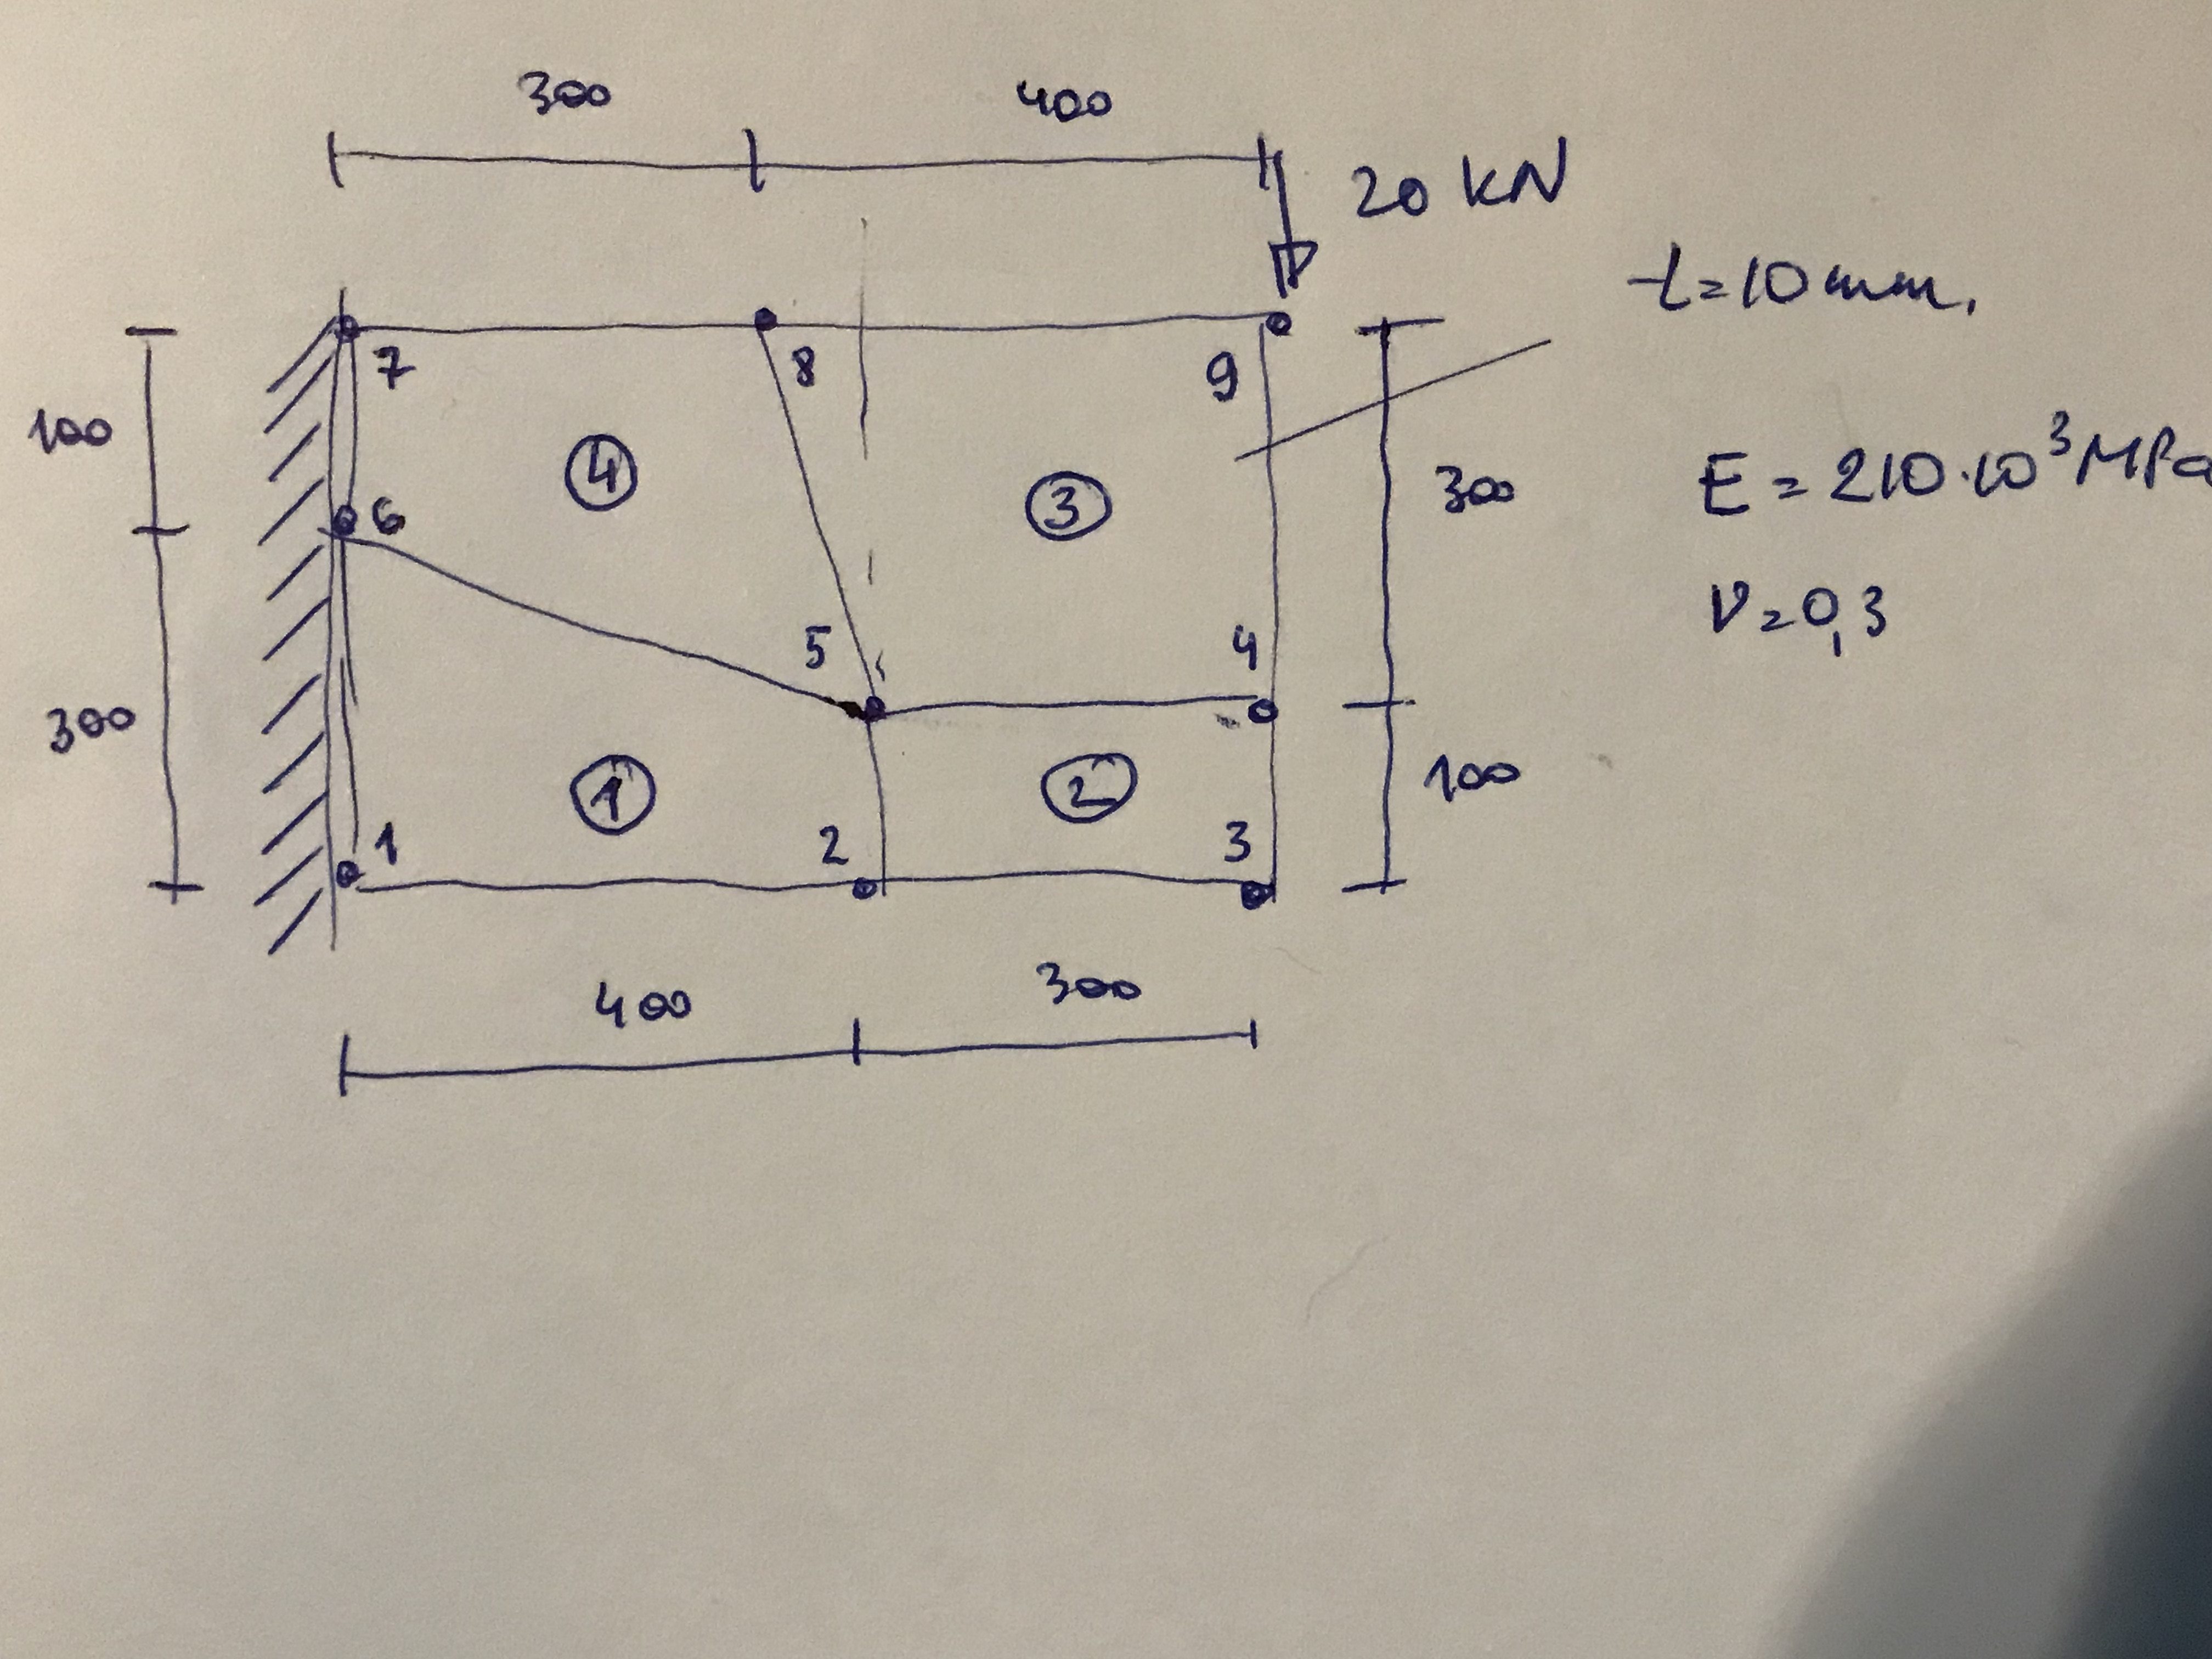 300 400
20 kN
t=10mm.
7 8 9
100 4 3 300
6
E=210·10³MPa
ν=0,3
5 4
300 1 2 100
1 2 3
400 300